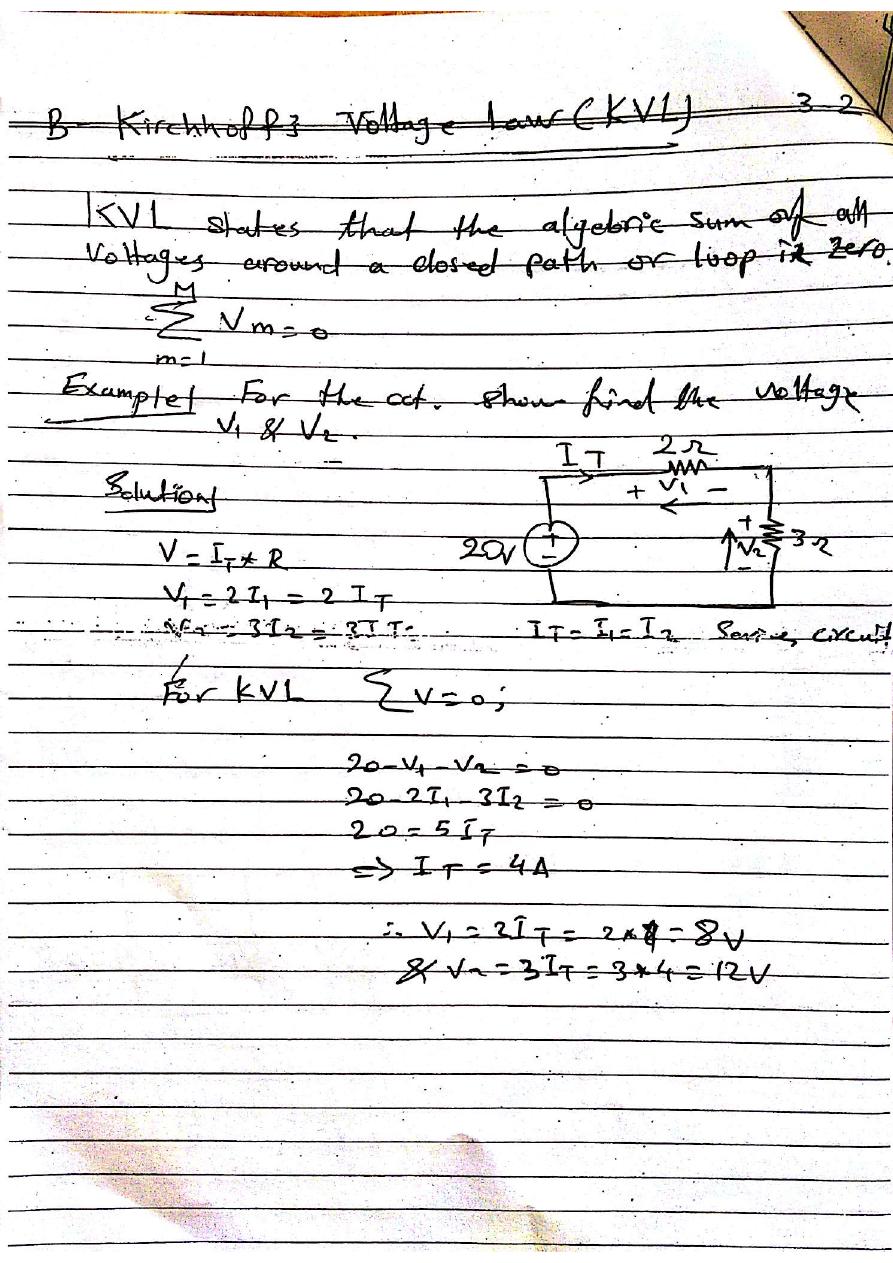 B- Kirchhoff's Voltage Law (KVL) 32
KVL states that the algebric sum of all
Voltages around a closed path or loop is zero.
M
Σ Vm = 0
m=1
Example/ For the cct. show find the voltage
V1 & V2.
Solution/
IT 2Ω
+ V1 -
20V + - + V2 - 3Ω
V = IT * R
V1 = 2I1 = 2IT
V2 = 3I2 = 3IT
IT = I1 = I2 circuit
For KVL ΣV=0;
20-V1-V2 = 0
20-2I1-3I2 = 0
20 = 5IT
=> IT = 4A
∴ V1 = 2IT = 2*4 = 8V
& V2 = 3IT = 3*4 = 12V